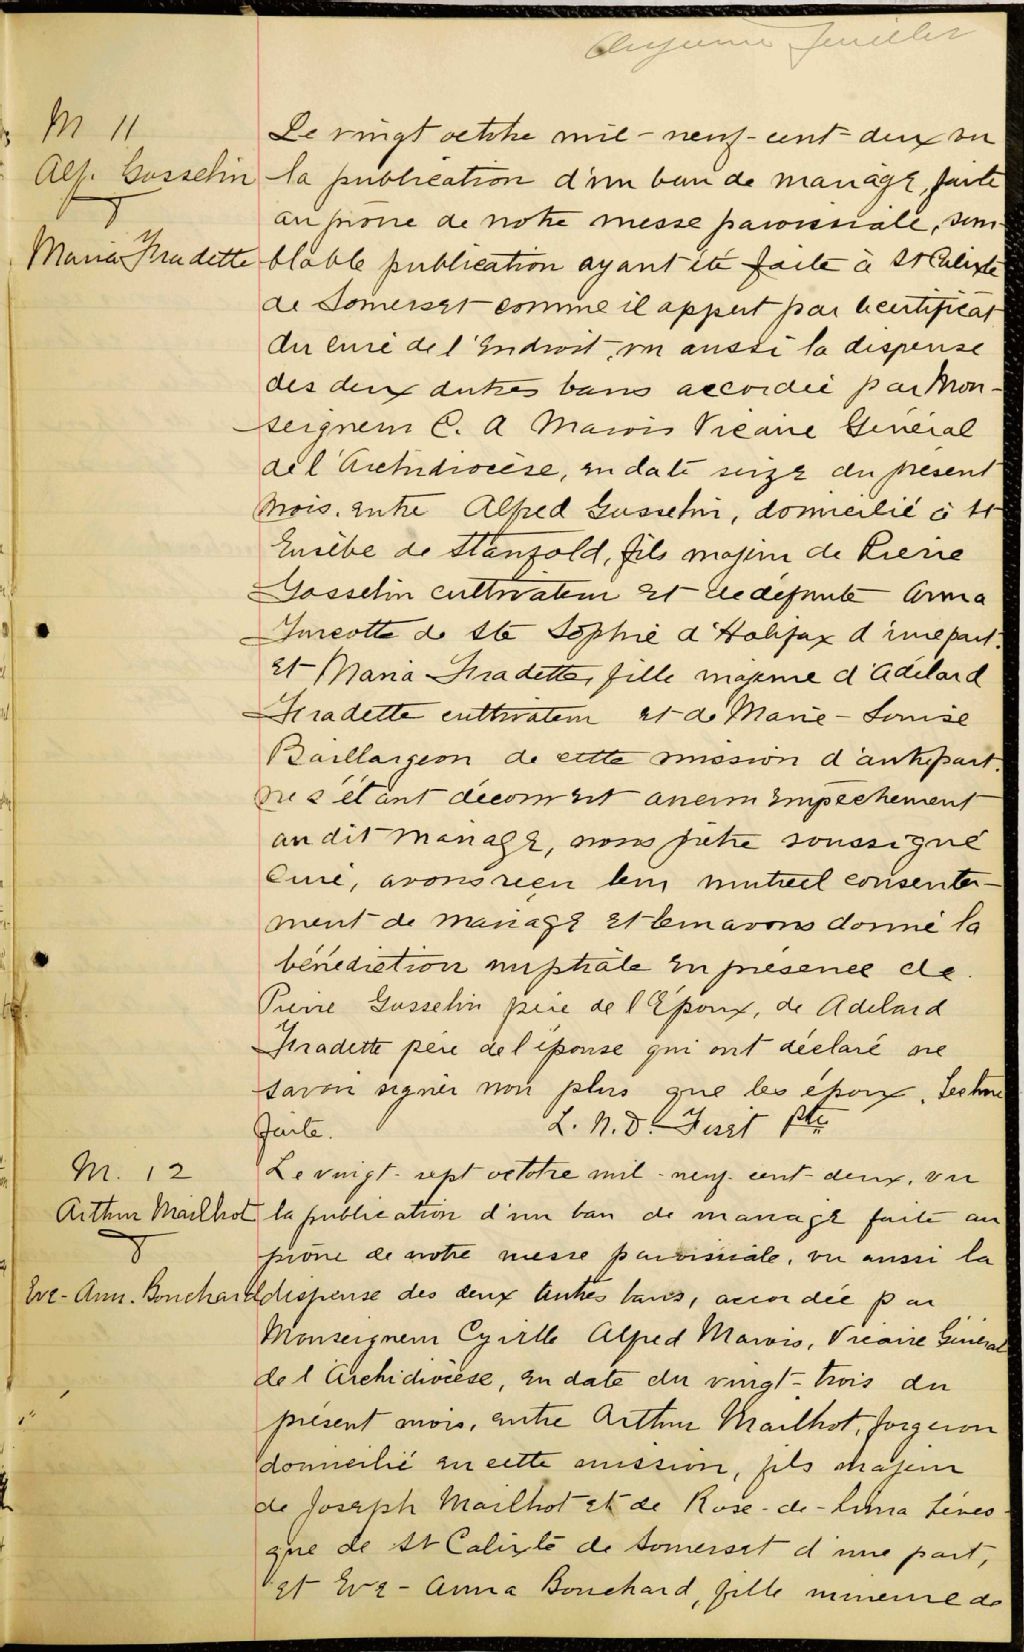 Onzième feuillet
M 11
Alf. Gosselin
&
Maria Fradette
Le vingt octobre mil-neuf-cent-deux vu
la publication d'un ban de mariage, faite
au prône de notre messe paroissiale, sem-
blable publication ayant été faite à St Calixte
de Somerset comme il appert par le certificat
du curé de l'Endroit, vu aussi la dispense
des deux autres bans accordée par Mon-
seigneur C. A Marois Vicaire Général
de l'Archidiocèse, en date seize du présent
mois, entre Alfred Gosselin, domicilié à St
Eusèbe de Stanfold, fils majeur de Pierre
Gosselin cultivateur et de défunte Anna
Turcotte de Ste Sophie d'Halifax d'une part.
et Maria Fradette, fille majeure d'Adélard
Fradette cultivateur et de Marie-Louise
Baillargeon de cette mission d'autre part.
ne s'étant découvert aucun empêchement
au dit mariage, nous prêtre soussigné
Curé, avons reçu leur mutuel consente-
ment de mariage et leur avons donné la
bénédiction nuptiale en présence de
Pierre Gosselin père de l'Époux, de Adelard
Fradette père de l'épouse qui ont déclaré ne
savoir signer non plus que les époux. Lecture
faite. L. N. D. Fiset Ptre
M. 12
Arthur Mailhot
&
Eve-Ann. Bouchard
Le vingt-sept octobre mil-neuf-cent-deux, vu
la publication d'un ban de mariage faite au
prône de notre messe paroissiale, vu aussi la
dispense des deux autres bans, accordée par
Monseigneur Cyrille Alfred Marois, Vicaire Général
de l'Archidiocèse, en date du vingt-trois du
présent mois, entre Arthur Mailhot, forgeron
domicilié en cette mission, fils majeur
de Joseph Mailhot et de Rose-de-Lima Léves-
que de St Calixte de Somerset d'une part,
et Eve-Anna Bouchard, fille mineure de